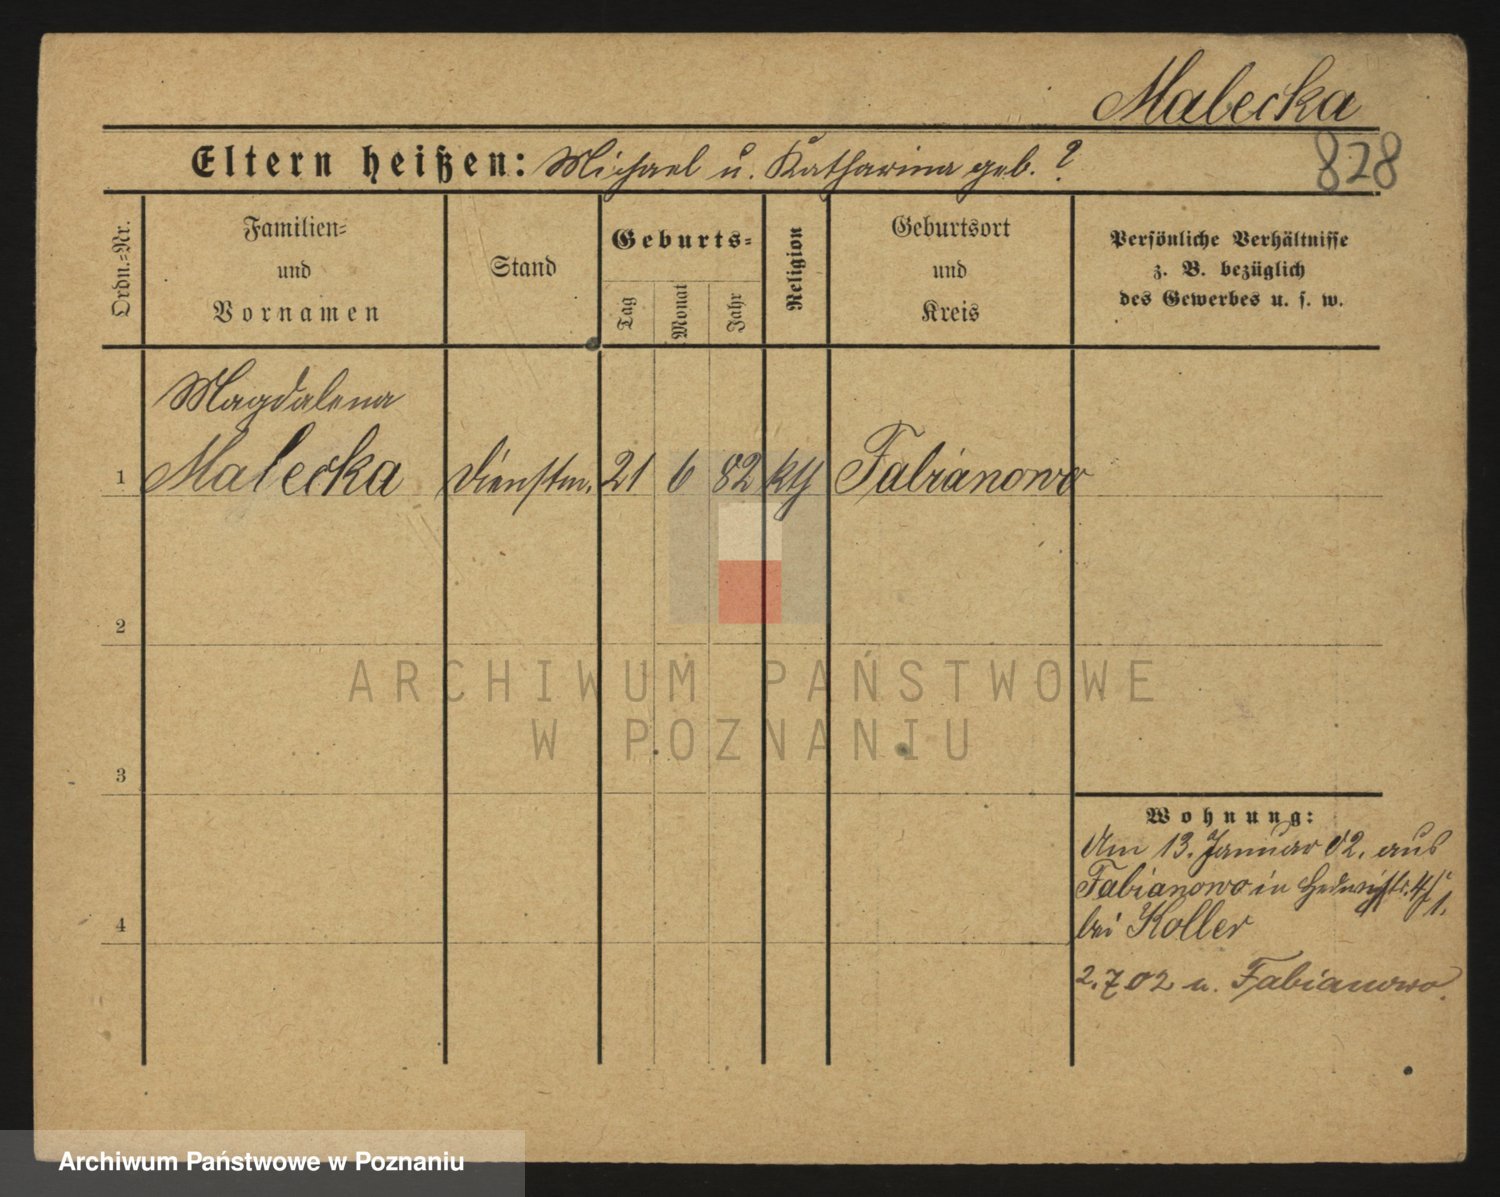 Malecka
Eltern heißen: Michael u. Katharina geb. ?
828
Ordn.-Nr.
Familien-
und
Vornamen
Stand
Geburts-
Tag
Monat
Jahr
Religion
Geburtsort
und
Kreis
Persönliche Verhältnisse
z. B. bezüglich
des Gewerbes u. s. w.
Magdalena
1 Malecka Dienstm. 21 6 82 kth Fabianowo
2
ARCHIWUM PAŃSTWOWE
W POZNANIU
3
Wohnung:
Am 13. Januar 02. aus
Fabianowo in Hedwigstr. 4/1.
4
bei Koller
2.7.02 n. Fabianowo.
Archiwum Państwowe w Poznaniu